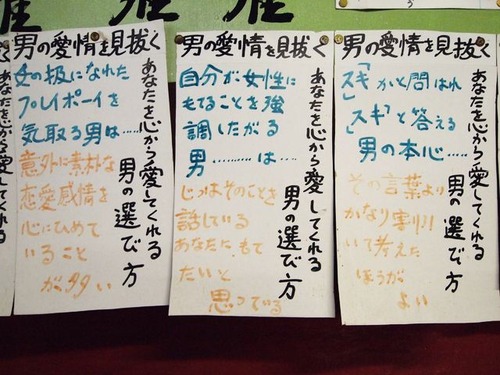 男の愛情を見抜く
あなたを心から愛してくれる
男の選び方
女の扱になれた
プレイボーイを
気取る男は……
意外に素朴な
恋愛感情を
心にひめて
いること
が多い
男の愛情を見抜く
あなたを心から愛してくれる
男の選び方
自分が女性に
もてることを強
調したがる
男………は…
じつはそのことを
話している
あなたに、もて
たいと
思っている
男の愛情を見抜く
あなたを心から愛してくれる
男の選び方
「スキ」かと問はれ
「スキ」と答える
男の本心……
その言葉より
かなり割引
いて考えた
ほうが
よい